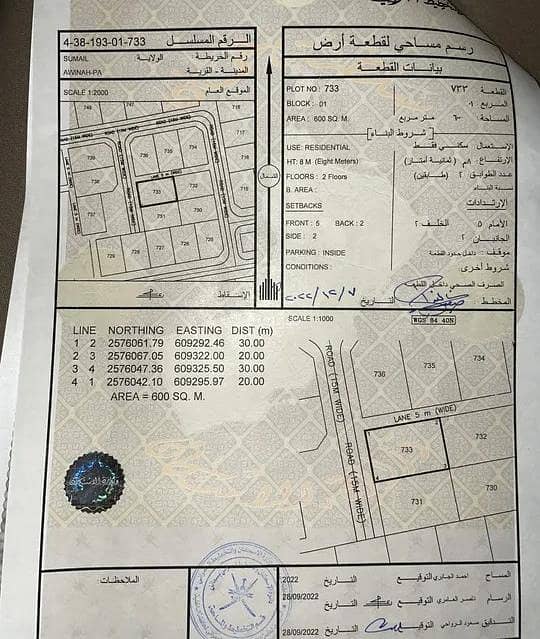 4-38-193-01-733 الرقم المسلسل
SUMAIL الولاية رقم الخريطة
AWINAH-PA المدينة - القرية
SCALE 1:2000 الموقع العام
749
747
718
739
736
735
734
717
738
733
732
716
737
731
730
728
729
ROAD (15M WIDE)
LANE 5 m (WIDE)
الإسقاط
رسم مساحي لقطعة أرض
بيانات القطعة
PLOT NO : 733 ٧٣٣ القطعة
BLOCK : 01 ٠١ المربع
AREA : 600 SQ. M. ٦٠٠ متر مربع المساحة:
شروط البناء
USE: RESIDENTIAL الإستعمال: سكني فقط
HT: 8 M (Eight Meters) الإرتفاع: ٨م (ثمانية أمتار)
FLOORS : 2 Floors عدد الطوابق ٢ (طابقين)
B. AREA : نسبة البناء
SETBACKS الإرتدادات
FRONT : 5 BACK : 2 الأمام ٥ الخلف ٢
SIDE : 2 الجانبان ٢
PARKING : INSIDE موقف: داخل حدود القطعة
CONDITIONS : شروط أخرى
الصرف الصحي داخل القطعة
المخطط التاريخ
الشمال
SCALE 1:1000
WGS 84 40N
LINE NORTHING EASTING DIST (m)
1 2 2576061.79 609292.46 30.00
2 3 2576067.05 609322.00 20.00
3 4 2576047.36 609325.50 30.00
4 1 2576042.10 609295.97 20.00
AREA = 600 SQ. M.
734
735
736
LANE 5 m (WIDE)
ROAD (15M WIDE)
ROAD (15M WIDE)
2
733
732
4
3
731
730
الملاحظات
المساح احمد الجابري التوقيع التاريخ 2022
الرسام ناصر العامري التوقيع التاريخ 28/09/2022
التدقيق سعود الرواحي التوقيع التاريخ 28/09/2022